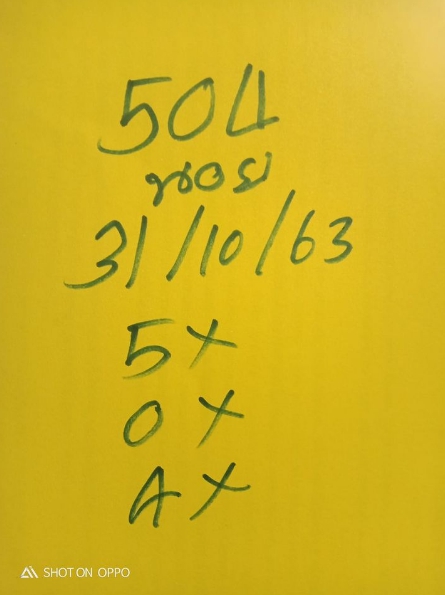 504
ฮานอย
31/10/63
5x
0x
4x
SHOT ON OPPO